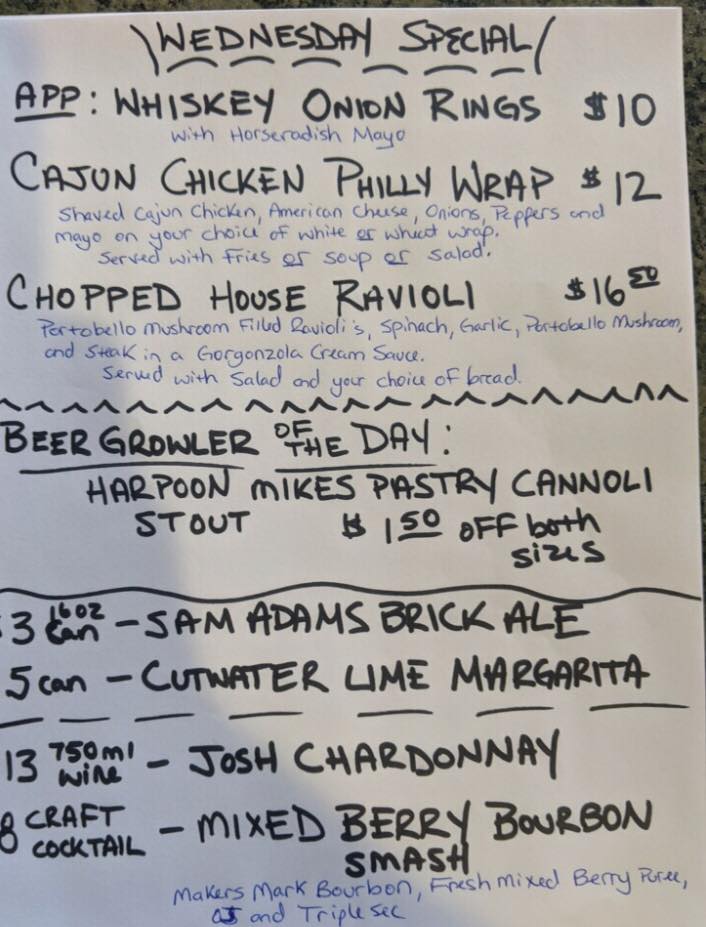 \WEDNESDAY SPECIAL/
APP: WHISKEY ONION RINGS $10
with Horseradish Mayo
CAJUN CHICKEN PHILLY WRAP $12
Shaved Cajun Chicken, American Cheese, Onions, Peppers and
mayo on your choice of white or wheat wrap.
Served with fries or soup or salad.
CHOPPED HOUSE RAVIOLI $16 50
Portobello Mushroom Filled Ravioli's, Spinach, Garlic, Portobello Mushroom,
and Steak in a Gorgonzola Cream Sauce.
Served with Salad and your choice of bread.
BEER GROWLER OF THE DAY:
HARPOON MIKES PASTRY CANNOLI
STOUT $1 50 OFF both
sizes
3 16oz Can - SAM ADAMS BRICK ALE
5 can - CUTWATER LIME MARGARITA
13 750ml wine - JOSH CHARDONNAY
8 CRAFT COCKTAIL - MIXED BERRY BOURBON
SMASH
Makers Mark Bourbon, Fresh mixed Berry Puree,
OJ and Triple Sec